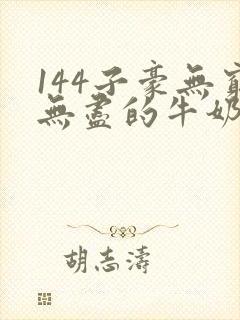 144子豪無窮
無盡的牛奶
胡志濤